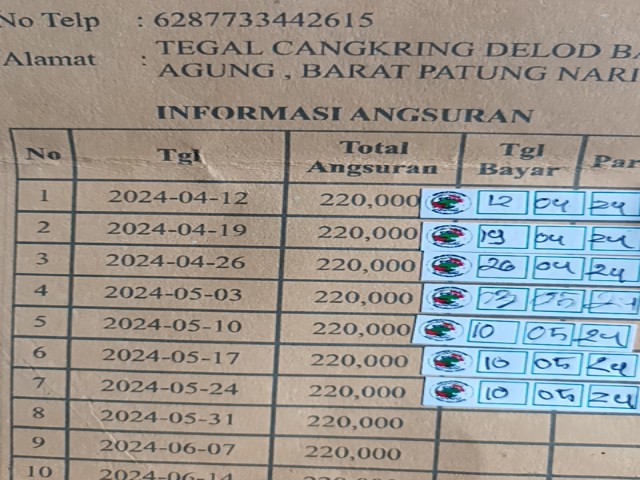 No Telp : 6287733442615
Alamat : TEGAL CANGKRING DELOD BA
AGUNG , BARAT PATUNG NARI
INFORMASI ANGSURAN
No Tgl Total Angsuran Tgl Bayar Par
1 2024-04-12 220,000 12 04 24
2 2024-04-19 220,000 19 04 24
3 2024-04-26 220,000 26 04 24
4 2024-05-03 220,000 03 05 24
5 2024-05-10 220,000 10 05 24
6 2024-05-17 220,000 10 05 24
7 2024-05-24 220,000 10 05 24
8 2024-05-31 220,000
9 2024-06-07 220,000
10 2024-06-14